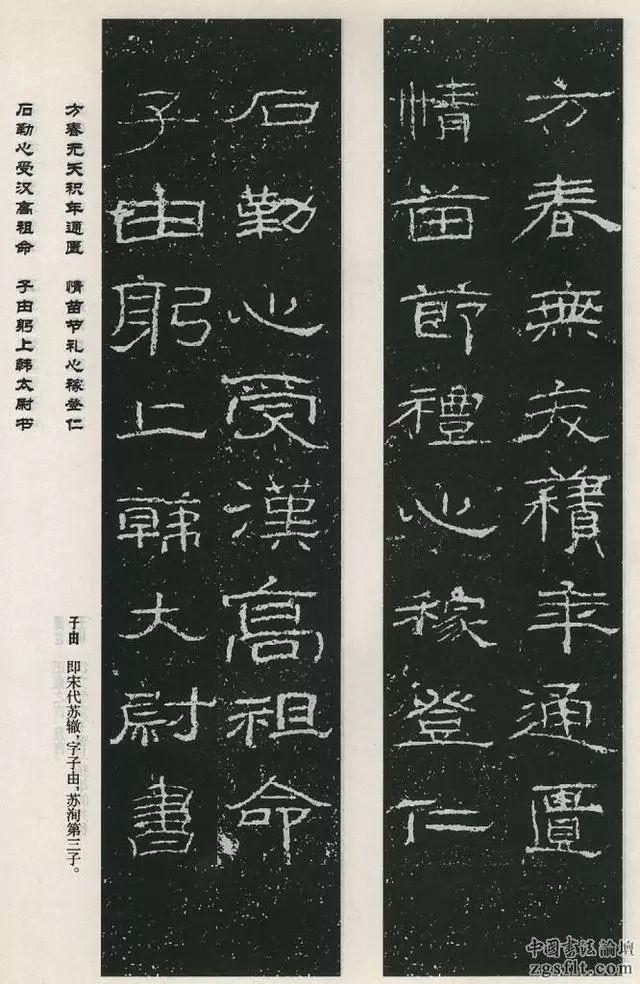 方春無夭積年通匱
情苗節禮心稼登仁
石勤心受漢高祖命
子由躬上韓大尉書
方春无夭积年通匮 情苗节礼心稼登仁
石勤心受汉高祖命 子由躬上韩太尉书
子由 即宋代苏辙,字子由,苏洵第三子。
中国书法論壇
zgsflt.com